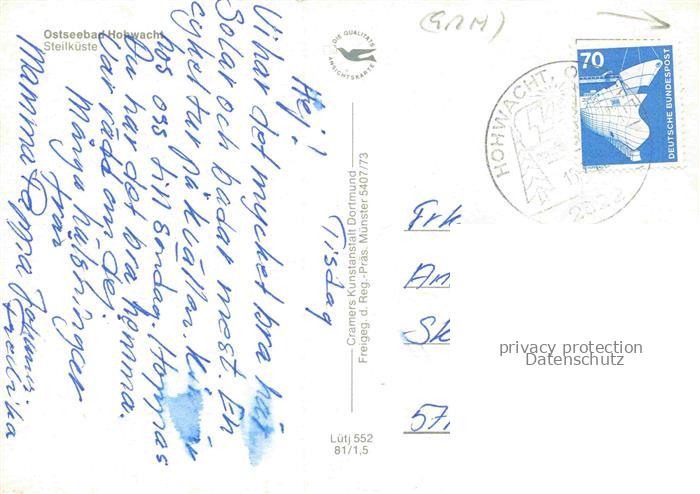 Ostseebad Hohwacht
Steilküste
DIE QUALITÄTS
ANSICHTSKARTE
Cramers Kunstanstalt Dortmund
Freigeg. d. Reg.-Präs. Münster 5407/73
Lütj 552
81/1,5
Tisdag
Hej!
Vi har det mycket bra här
Solar och badar mest. En
cykeltur på kvällen.
hos oss till söndag. Hoppas
Du har det bra hemma.
Var rädd om dej.
Många hälsningar
från
Mamma Pappa
Fredrika
70
DEUTSCHE BUNDESPOST
HOHWACHT, O
2322
Frk
An
Sk
57
privacy protection
Datenschutz